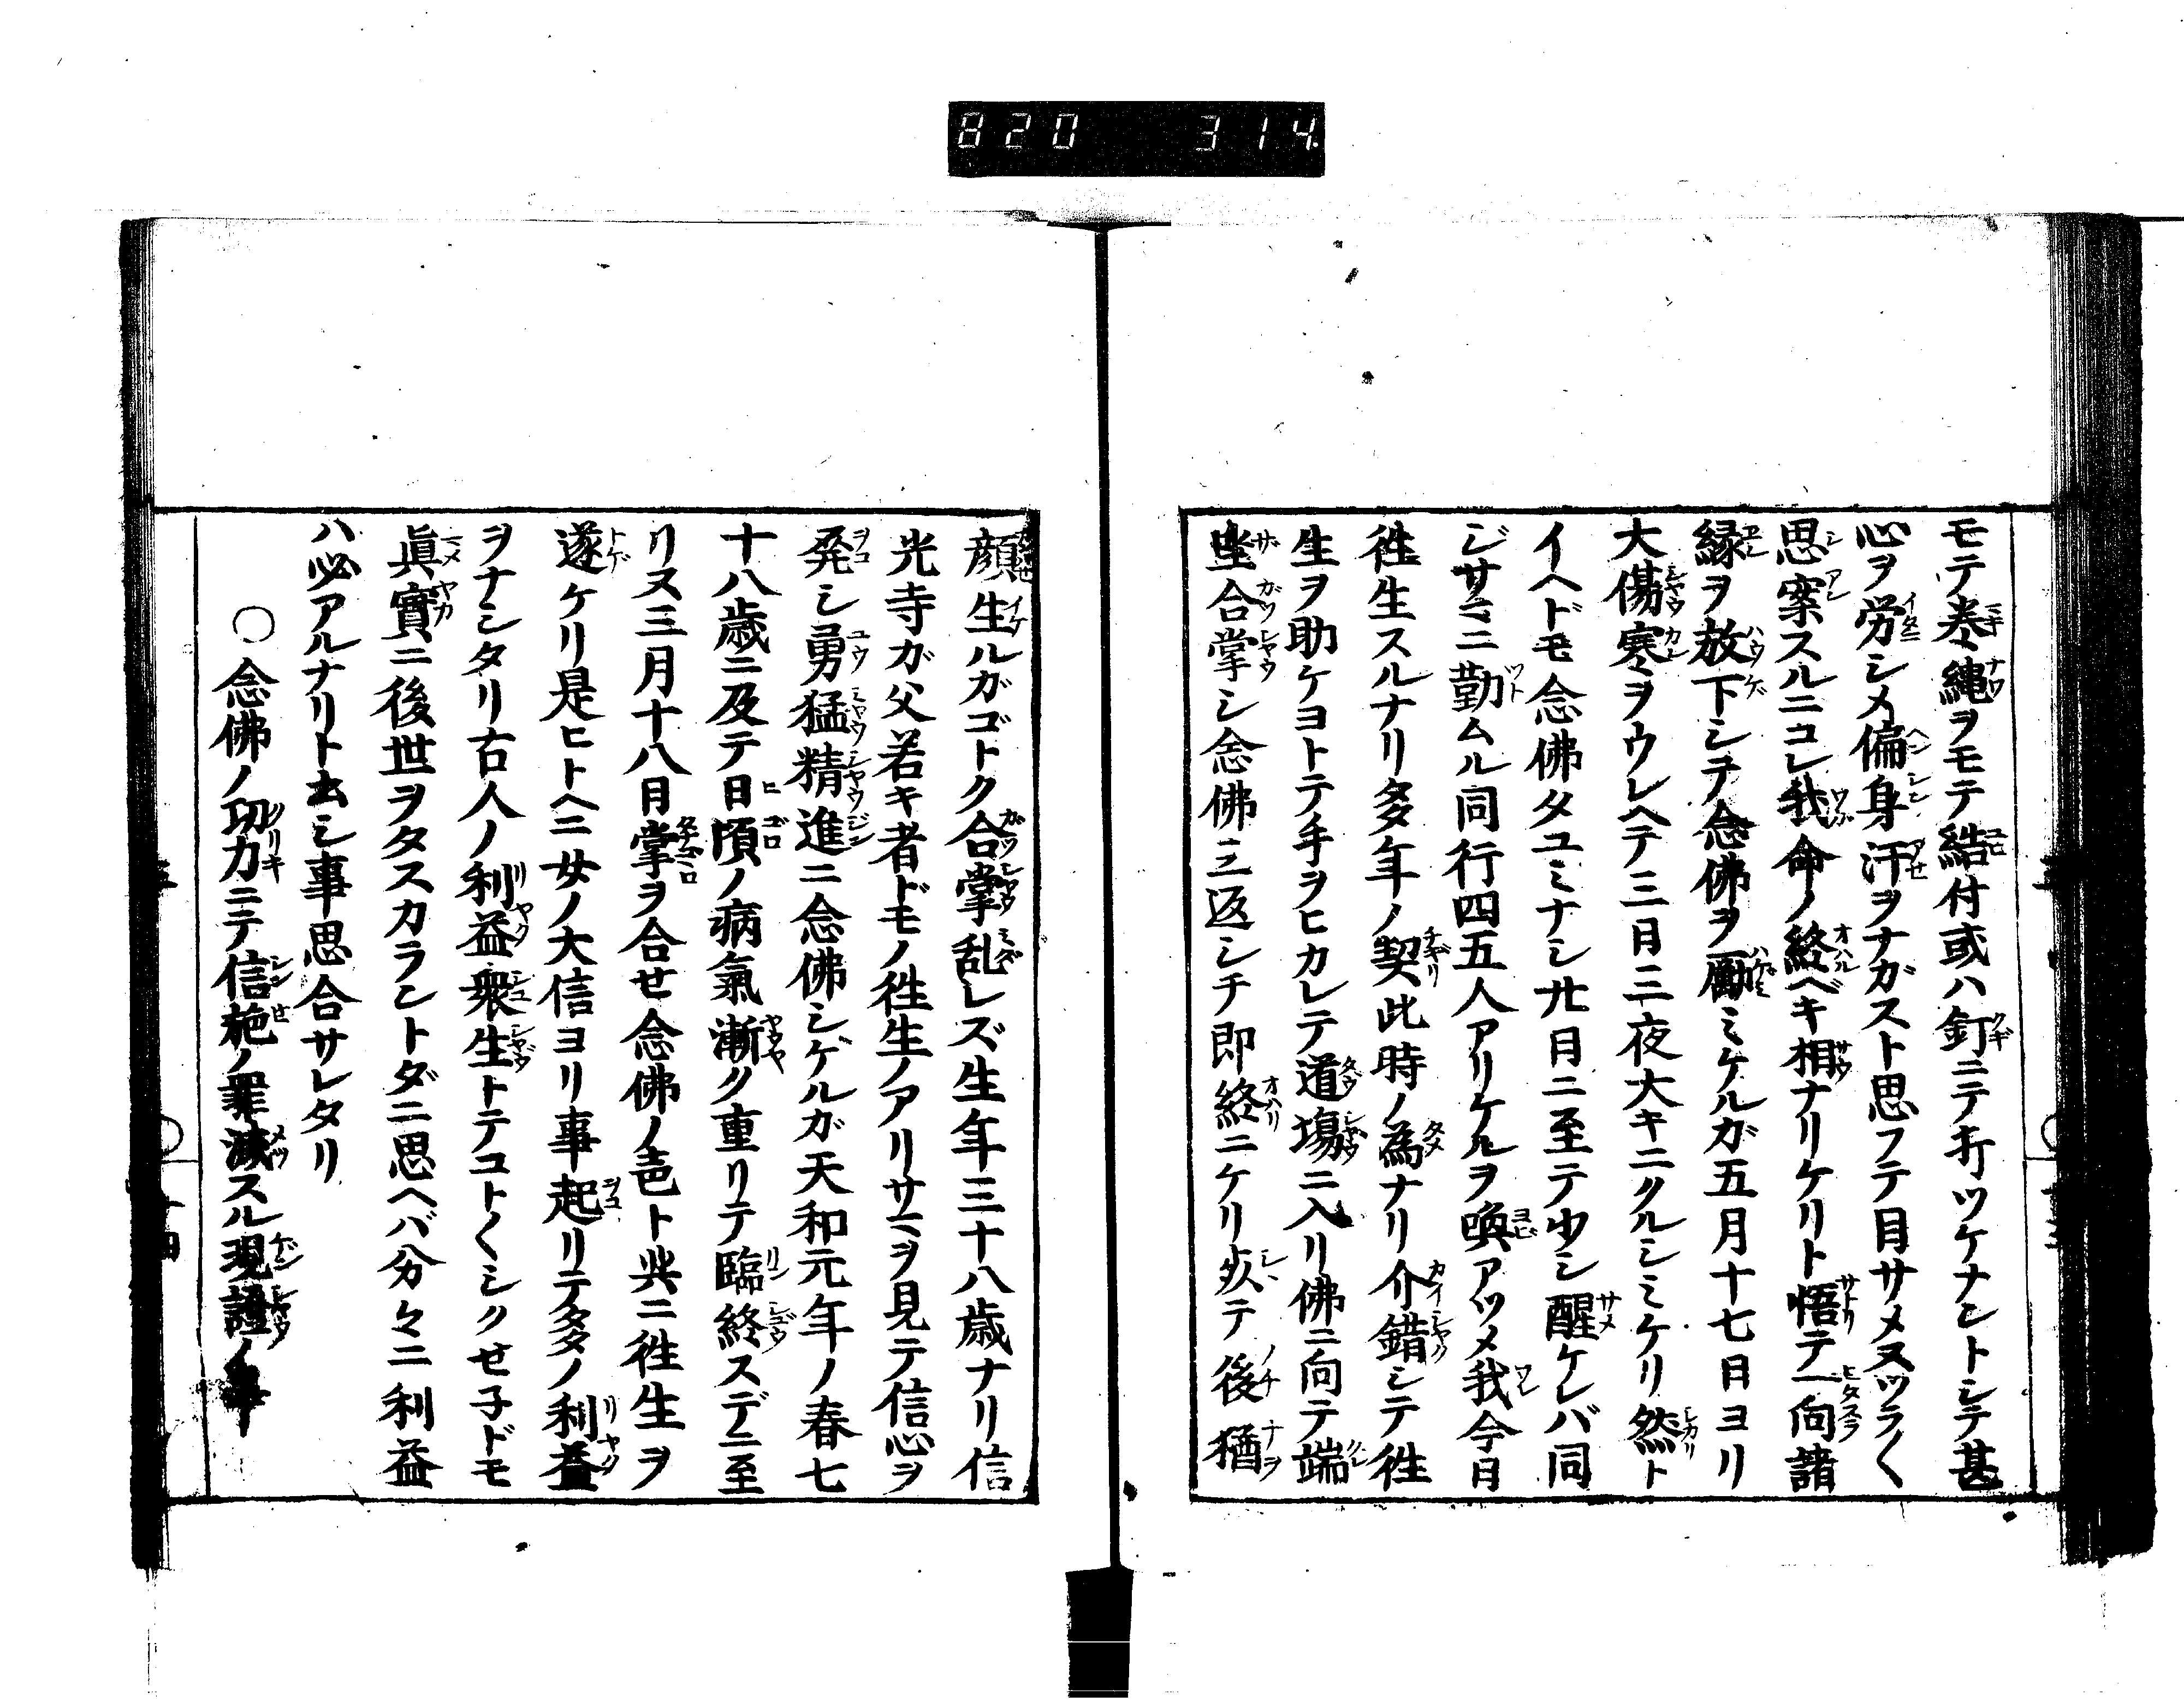 820 314
モテ巻縄ヲモテ結付或ハ釘ニテ打ツケナントシテ甚
心ヲ労シメ偏身汗ヲナガスト思フテ目サメヌツラ〱
思案スルニコレ我命ノ終ベキ相ナリケリト悟テ一向諸
縁ヲ放下シテ念佛ヲ励ミケルガ五月十七日ヨリ
大傷寒ヲウレヘテ三日三夜大キニクルシミケリ然ト
イヘドモ念佛タユミナシ廿日ニ至テ少シ醒ケレバ同
ジサマニ勤ムル同行四五人アリケルヲ喚アツメ我今日
徃生スルナリ多年ノ契此時ノ為ナリ介錯シテ徃
生ヲ助ケヨトテ手ヲヒカレテ道場ニ入リ佛ニ向テ端
坐合掌シ念佛三返シテ即終ニケリ死テ後猶
顔生ルガゴトク合掌乱レズ生年三十八歳ナリ信
光寺ガ父若キ者ドモノ徃生ノアリサマヲ見テ信心ヲ
発シ勇猛精進ニ念佛シケルガ天和元年ノ春七
十八歳ニ及テ日頃ノ病氣漸ク重リテ臨終スデニ至
リヌ三月十八日掌ヲ合セ念佛ノ声ト共ニ徃生ヲ
遂ケリ是ヒトヘニ女ノ大信ヨリ事起リテ多ノ利益
ヲナシタリ古人ノ利益衆生トテコト〱シクセ子ドモ
眞實ニ後世ヲタスカラントダニ思ヘバ分々ニ利益
ハ必アルナリト云シ事思合サレタリ
○念佛ノ功力ニテ信施ノ罪滅スル現證ノ事